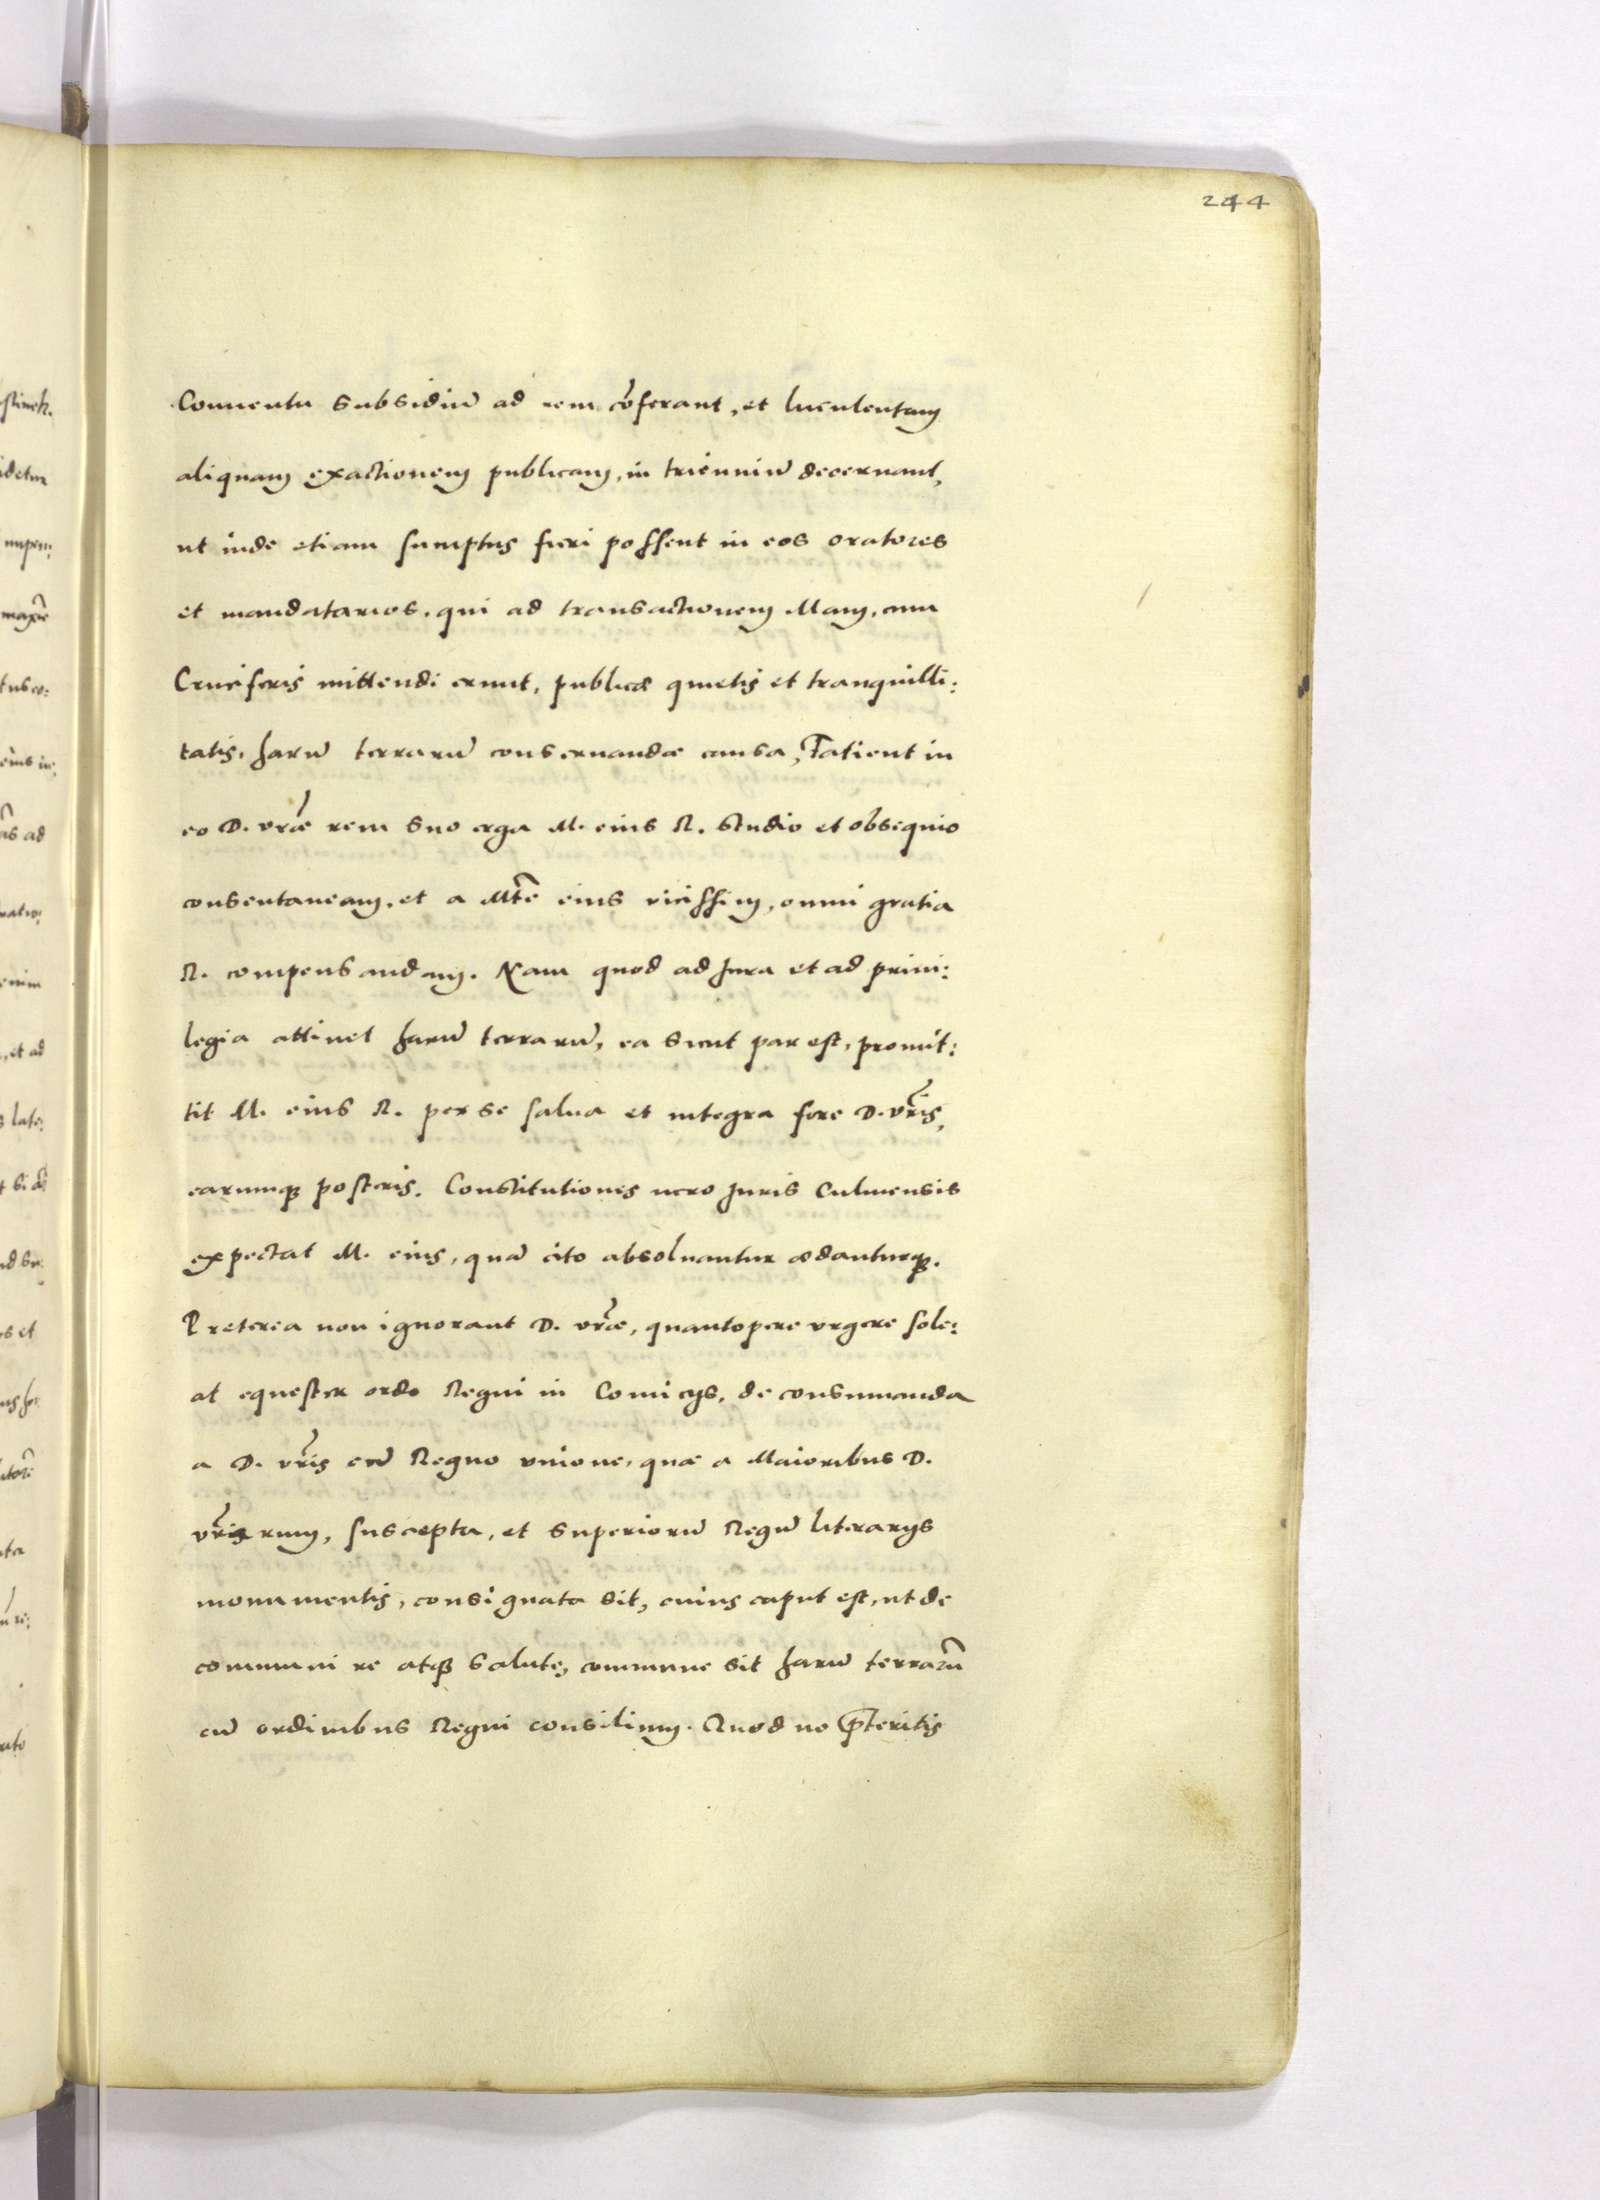 244
Conuentu subsidiū ad rem cōferant, et luculentam
aliquam exactionem publicam, in trienniū decernant,
ut inde etiam sumptus fieri possent in eos oratores
et mandatarios, qui ad transactionem illam, cum
Cruciferis mittendi erunt, publicæ quietis et tranquilli:
tatis, harū terrarū conseruandæ causa, Facient in
eo D. vr̃æ rem suo erga M. eius R. studio et obsequio
consentaneam, et a Mt̃e eius vicissim, omni gratia
R. compensandam. Nam quod ad Jura et ad priui:
legia attinet harū terrarū, ea sicut par est, promit:
tit M. eius R. per se salua et integra fore D. vr̃is,
earumq; posteris. Constitutiones uero Juris Culmensis
expectat M. eius, quā cito absoluantur ædanturq;.
Preterea non ignorant D. vr̃æ, quantopere vrgere sole:
at equester ordo Regni in Comicijs, de consumanda
a D. vr̃is cū Regno vnione, quæ a Maioribus D.
vr̃arum, suscepta, et superiorū Regū literarijs
monumentis, consignata sit, cuius caput est, ut de
communi re atq; salute, commune sit harū terrarū
cū ordinibus Regni consilium. Quod no p̃teritis